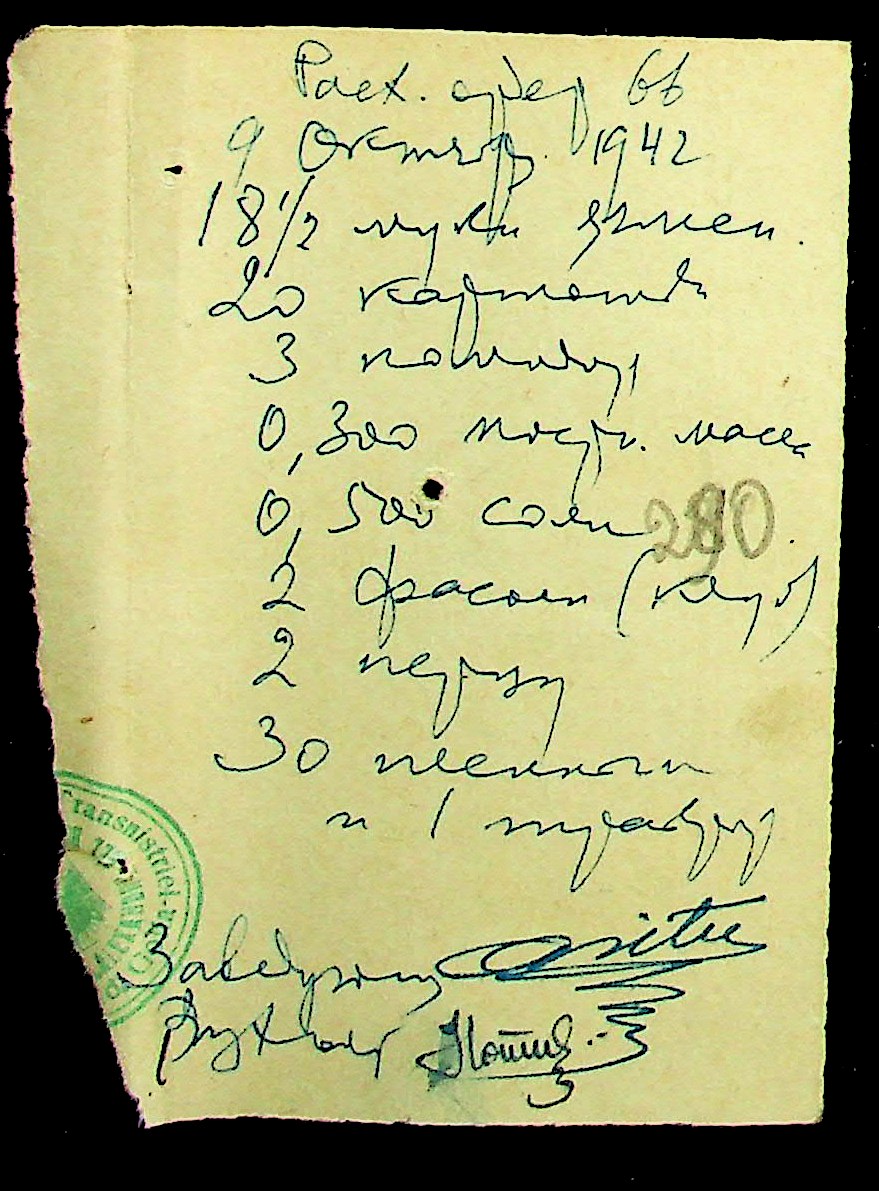 Расх. ордер 66
9 Октяб. 1942
18 1/2 муки ячмен.
20 картошки
3 помидор
0,300 постн. масла
0,500 соли
290
2 фасоли
2 перцу
30
и 1
Transnistriei
Заведующ
Бухгалт